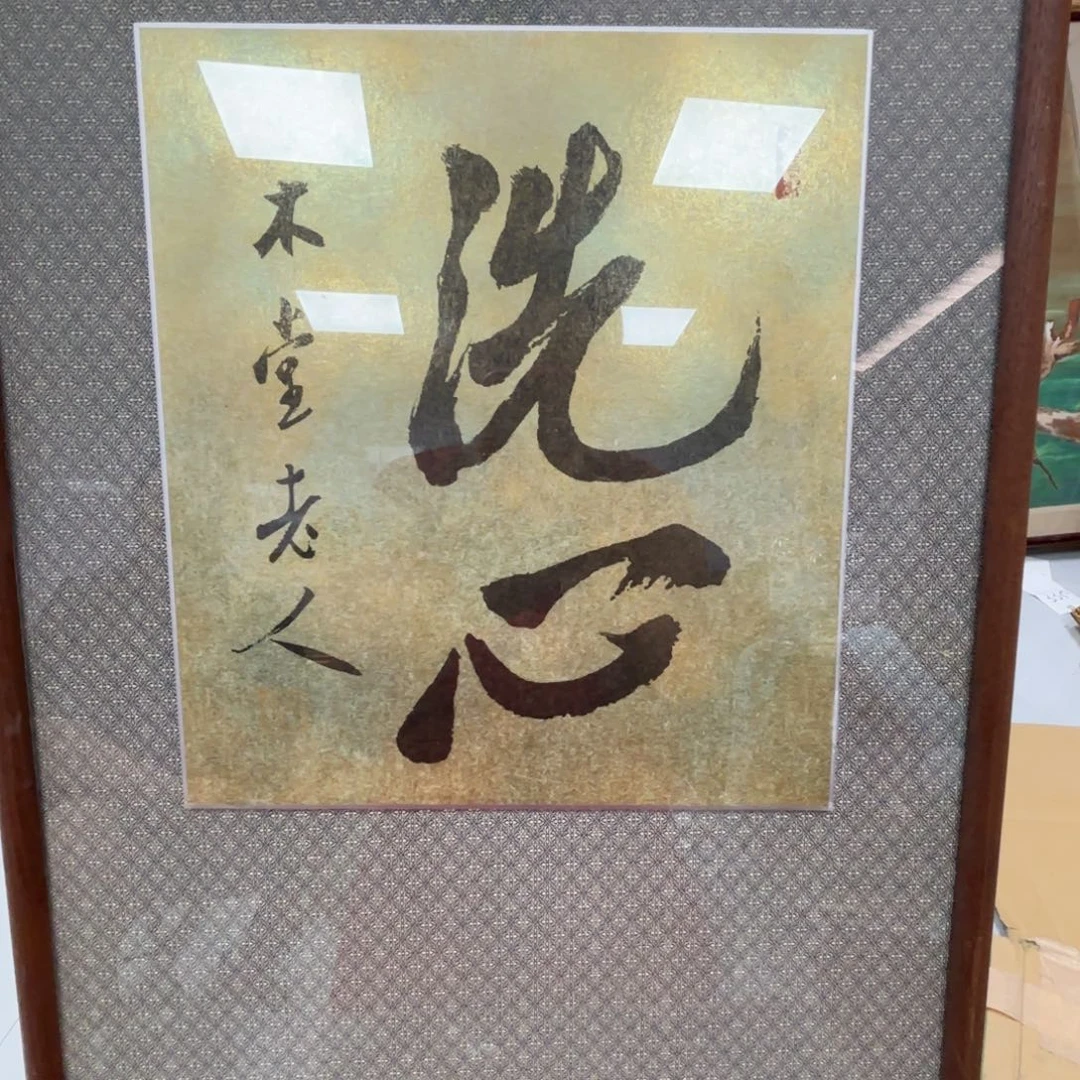 洗心
木堂老人